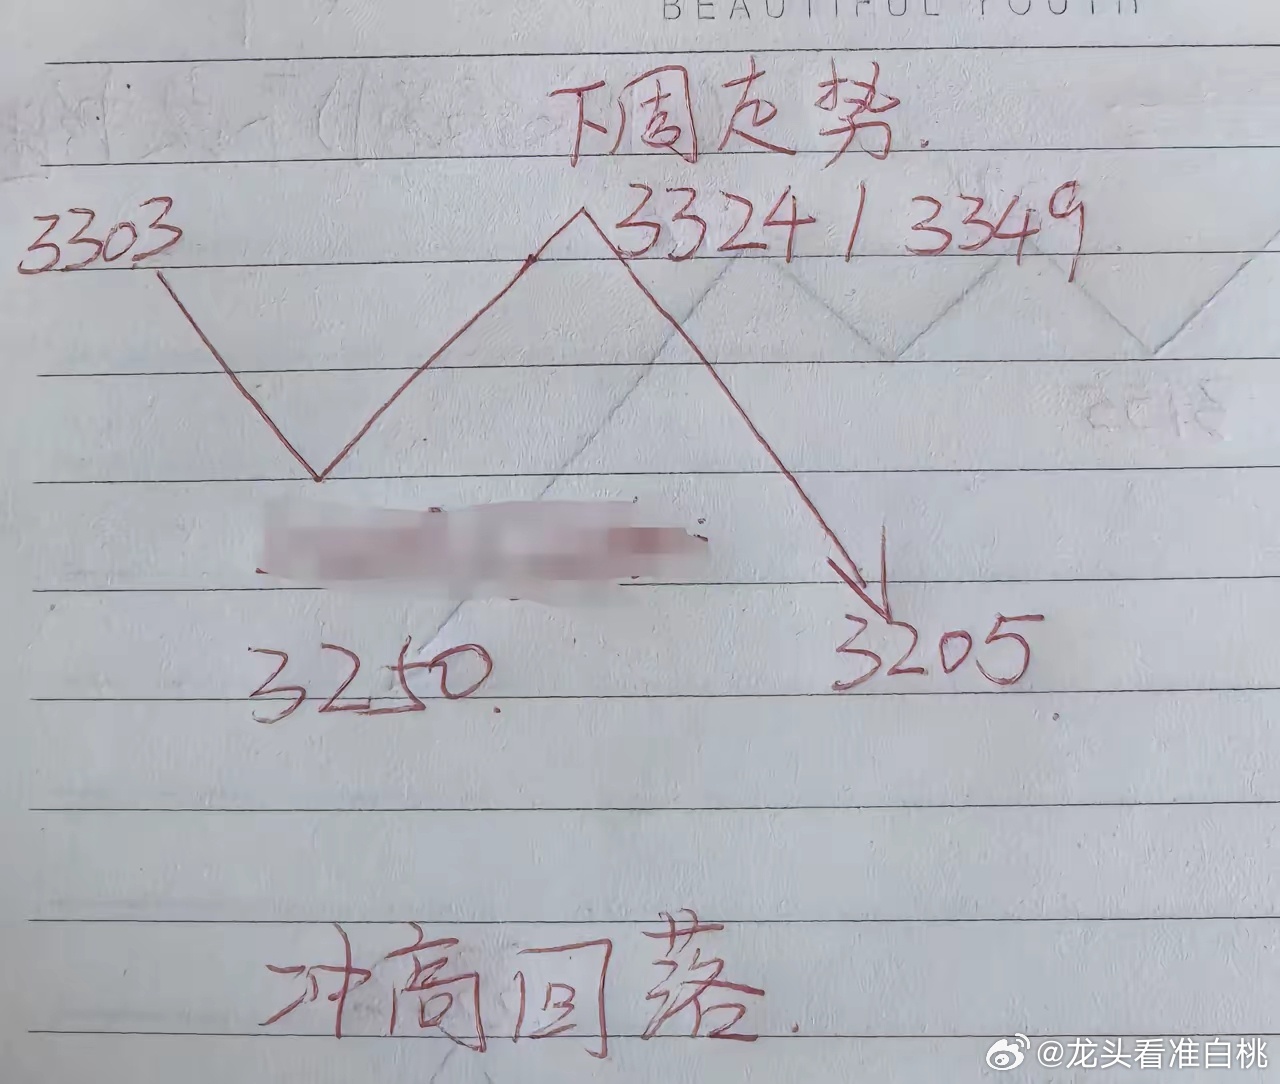 BEAUTIFUL YOUTH
下周走势.
3303
3324 / 3349
3250.
3205
冲高回落.
@龙头看准白桃